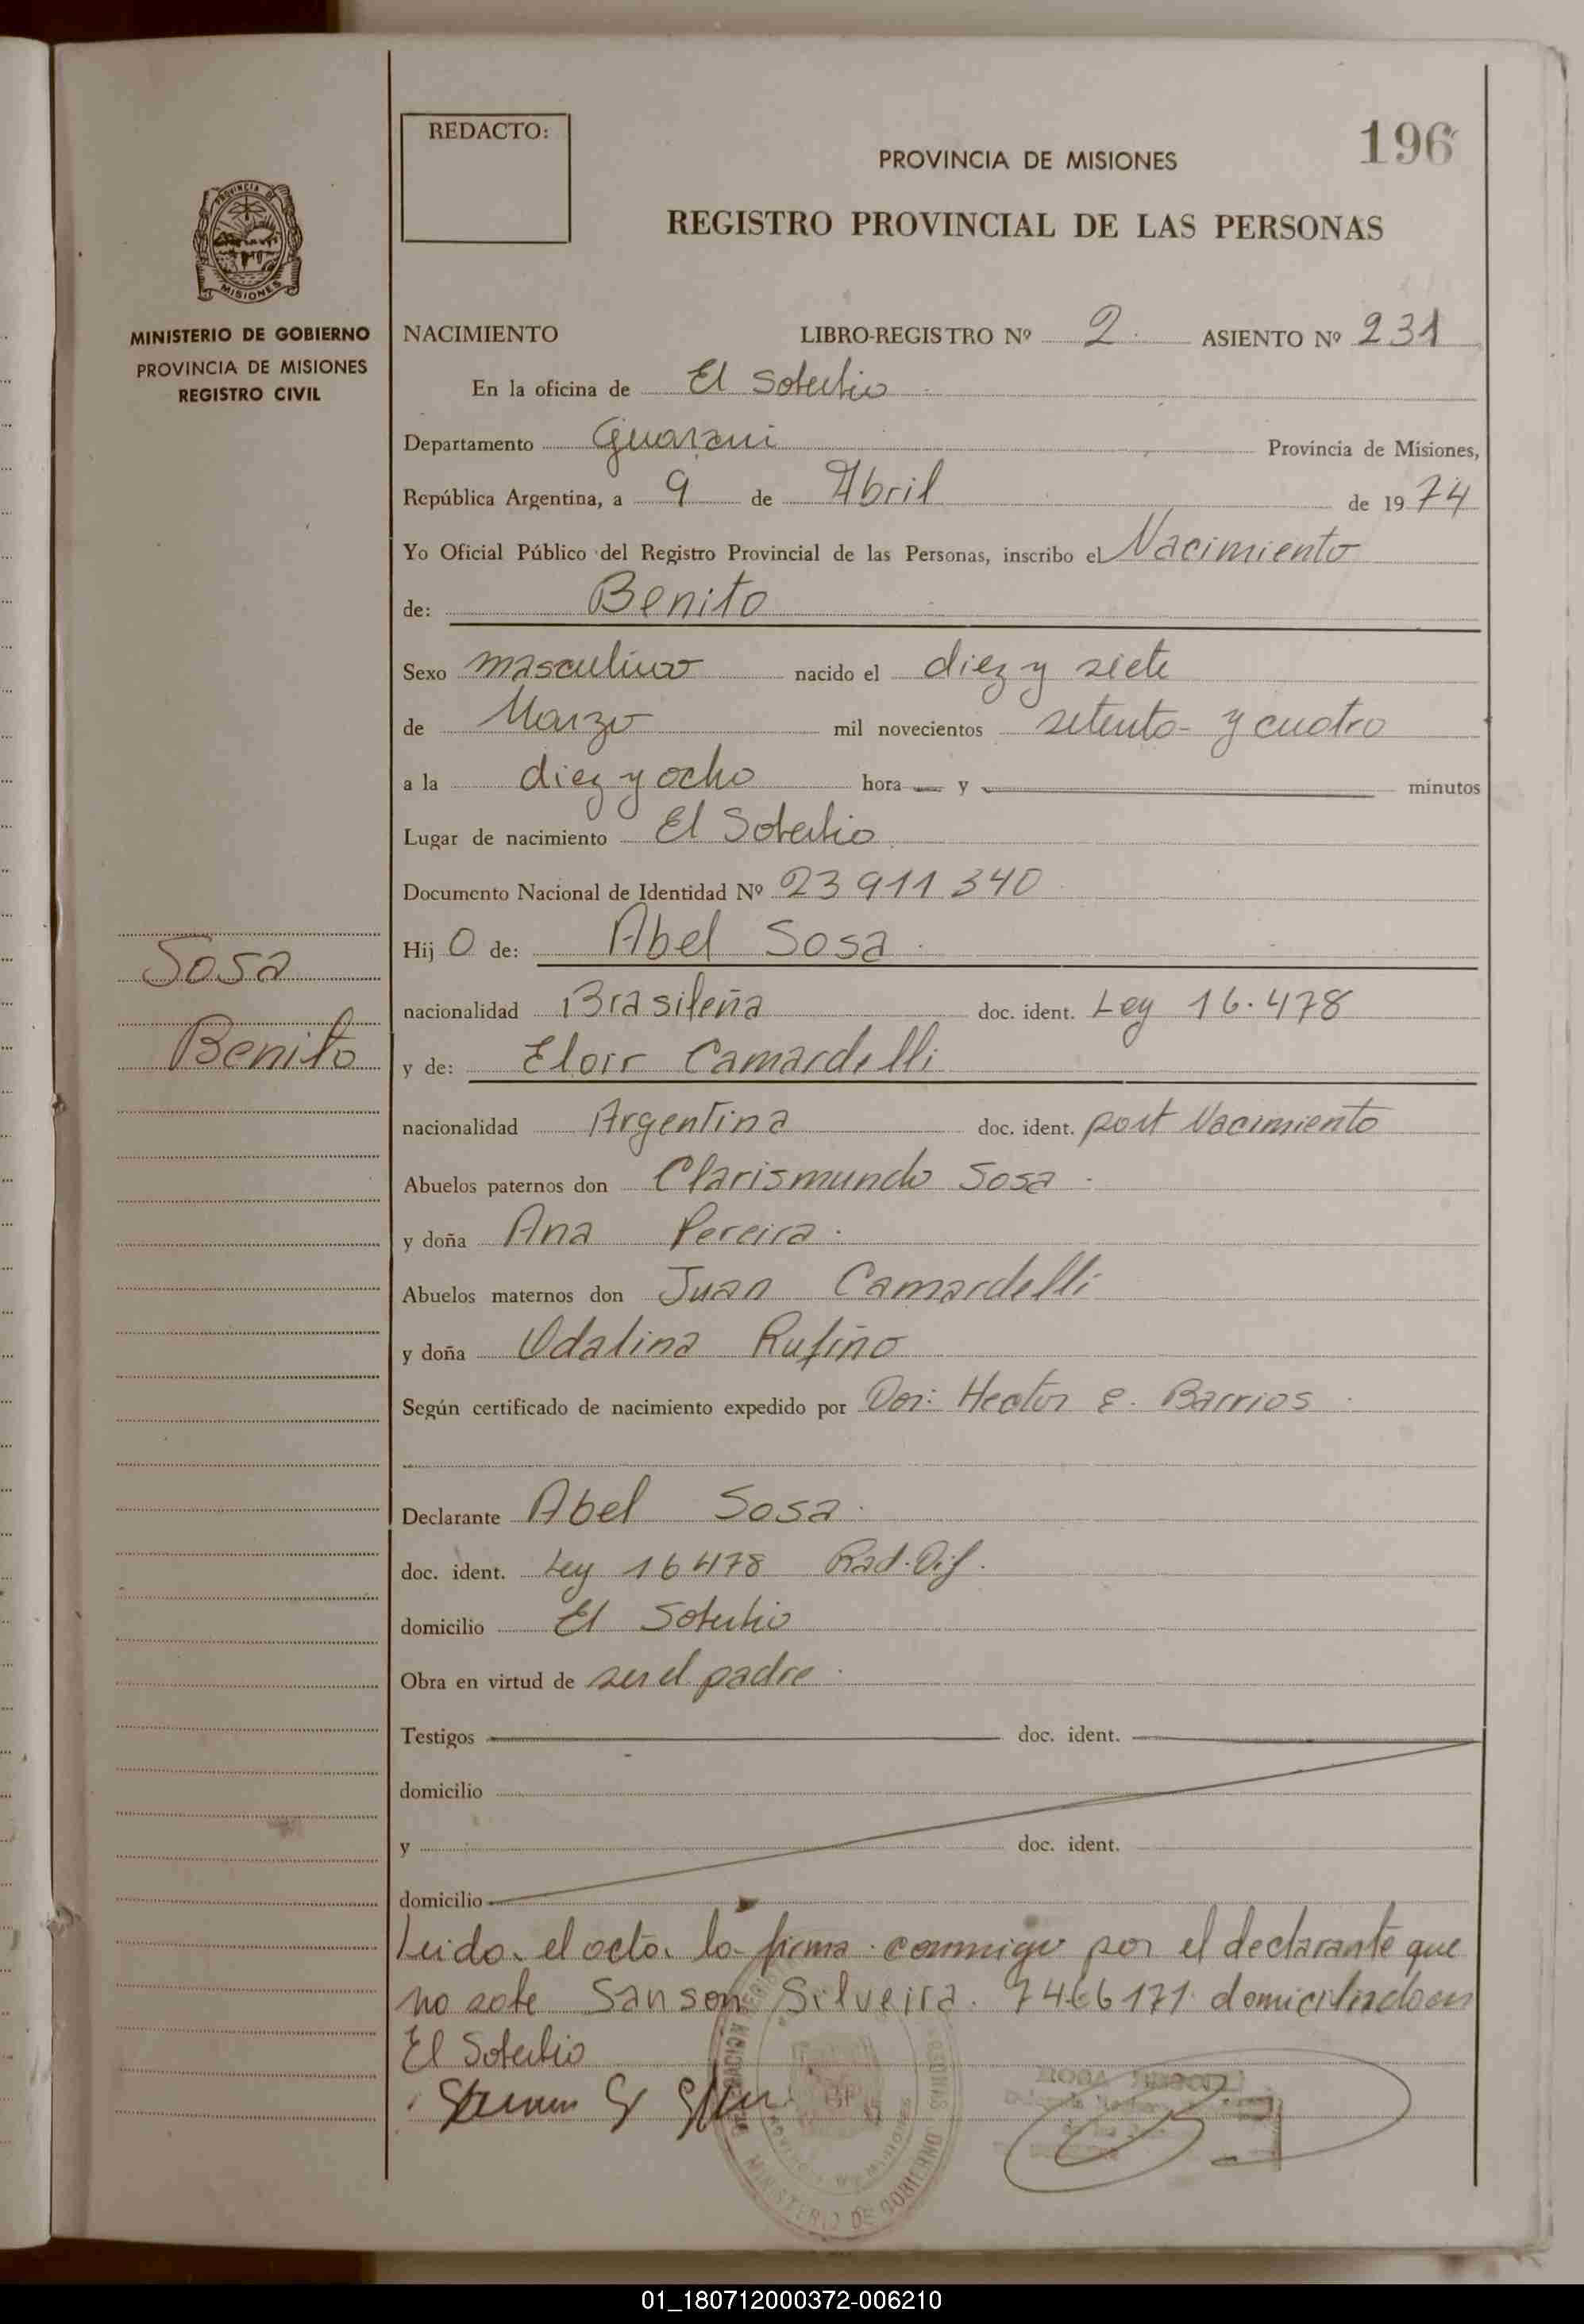 REDACTO:
196
PROVINCIA DE MISIONES
REGISTRO PROVINCIAL DE LAS PERSONAS
PROVINCIA DE
MISIONES
MINISTERIO DE GOBIERNO
PROVINCIA DE MISIONES
REGISTRO CIVIL
NACIMIENTO LIBRO-REGISTRO Nº 2. ASIENTO Nº 231
En la oficina de El Soberbio
Departamento Guarani Provincia de Misiones,
República Argentina, a 9 de Abril de 1974
Yo Oficial Público del Registro Provincial de las Personas, inscribo el Nacimiento
de: Benito
Sexo masculino nacido el diez y siete
de Marzo mil novecientos setenta y cuatro
a la diez y ocho hora — y — minutos
Lugar de nacimiento El Soberbio
Documento Nacional de Identidad Nº 23 911 340
Hijo de: Abel Sosa
Sosa
Benito
nacionalidad Brasileña doc. ident. Ley 16.478
y de: Eloir Camardelli
nacionalidad Argentina doc. ident. part Nacimiento
Abuelos paternos don Clarismundo Sosa
y doña Ana Pereira
Abuelos maternos don Juan Camardelli
y doña Odalina Rufino
Según certificado de nacimiento expedido por Dor: Hector E. Barrios
Declarante Abel Sosa
doc. ident. Ley 16478 Rad. Dif.
domicilio El Soberbio
Obra en virtud de ser el padre
Testigos doc. ident.
domicilio
y doc. ident.
domicilio
Leida el acta la firma conmigo por el declarante que
no sabe Sanson Silveira. 7466171 domiciliado en
El Soberbio
MINISTERIO DE GOBIERNO
01_180712000372-006210